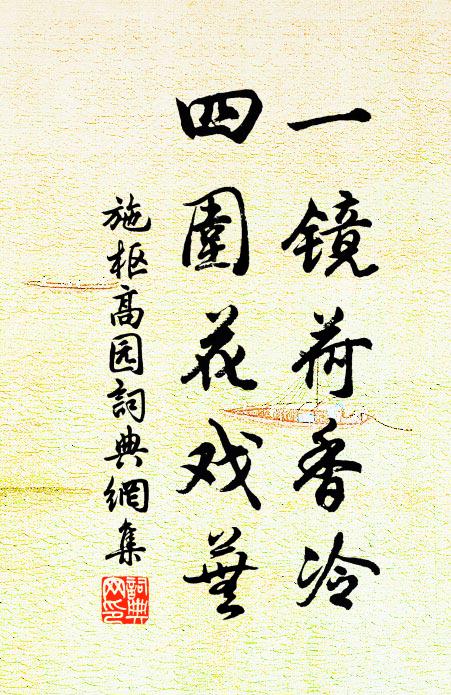 一镜荷香冷
四围花戏芜
施枢高园詞典網集
詞典网印